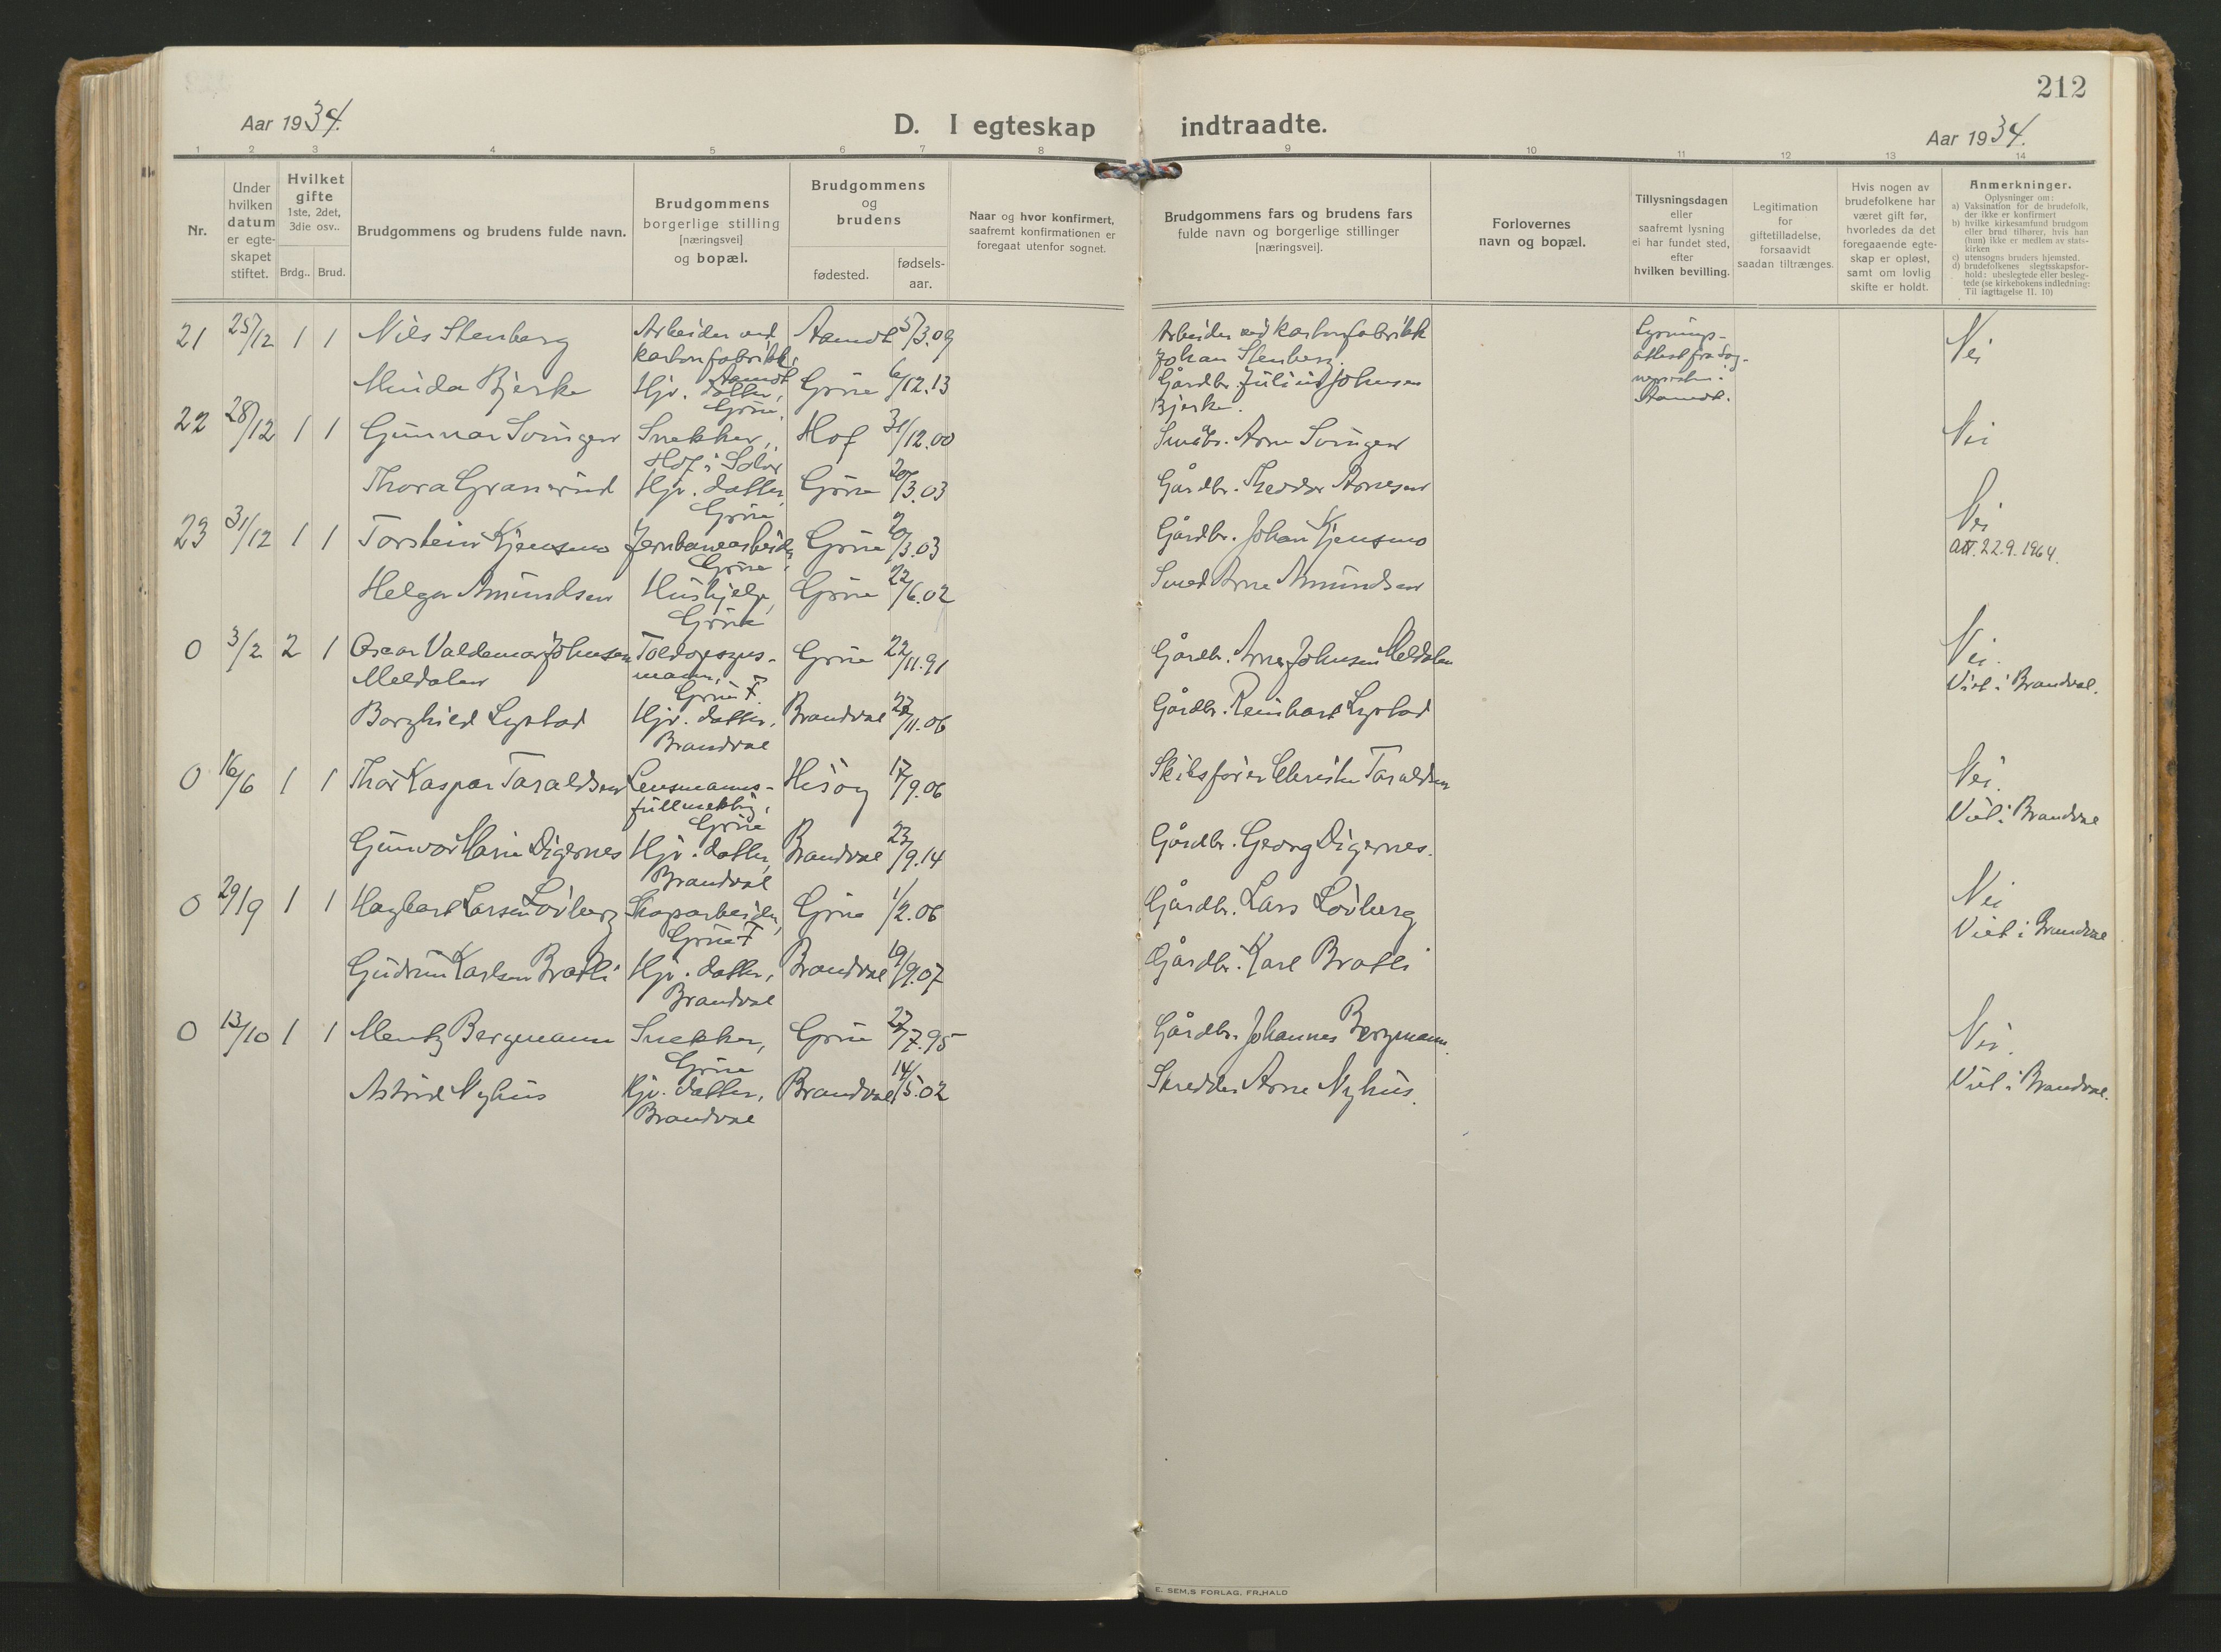 212
Aar 1934.
D. I egteskap indtraadte.
Aar 1934.
1 2 3 4 5 6 7 8 9 10 11 12 13 14
Nr.
Under
hvilken
datum
er egte-
skapet
stiftet.
Hvilket
gifte
1ste, 2det,
3die osv..
Brdg.. Brud.
Brudgommens og brudens fulde navn.
Brudgommens
borgerlige stilling
[næringsvei]
og bopæl.
Brudgommens
og
brudens
fødested.
fødsels-
aar.
Naar og hvor konfirmert,
saafremt konfirmationen er
foregaat utenfor sognet.
Brudgommens fars og brudens fars
fulde navn og borgerlige stillinger
[næringsvei].
Forlovernes
navn og bopæl.
Tillysningsdagen
eller
saafremt lysning
ei har fundet sted,
efter
hvilken bevilling.
Legitimation
for
giftetilladelse,
forsaavidt
saadan tiltrænges.
Hvis nogen av
brudefolkene har
været gift før,
hvorledes da det
foregaaende egte-
skap er opløst,
samt om lovlig
skifte er holdt.
Anmerkninger.
Oplysninger om:
a) Vaksination for de brudefolk,
der ikke er konfirmert
b) hvilke kirkesamfund brudgom
eller brud tilhører, hvis han
(hun) ikke er medlem av stats-
kirken
c) utensogns bruders hjemsted.
d) brudefolkenes slegtsskapsfor-
hold: ubeslegtede eller besleg-
tede (se kirkebokens indledning:
Til iagttagelse II. 10)
21 25/12 1 1 Nils Stenberg Arbeider ved Aamot 5/3.09 Arbeider ved kartonfabrikk Nei
kartonfabrikk, Aamot Johan Stenberg.
Minda Bjerke Hjv. datter, Grue 6/12.13 Gårdbr. Julius Johnsen
Grue. Bjerke.
Lysnings-
attest fra Sog-
nepresten i
Aamot.
22 28/12 1 1 Gunnar Svingen Snekker, Hof 31/12.00 Småbr. Arne Svingen Nei
Hof i Solør
Thora Granerud Hjv. datter, Grue 20/3.03 Gårdbr. Theodor Arnesen
Grue
23 31/12 1 1 Torstein Kjensmo Jernbanearbeider, Grue 20/3.03 Gårdbr. Johan Kjensmo Nei
Grue. att. 22.9.1964.
Helga Amundsen Hushjelp, Grue 22/6.02 Smed Arne Amundsen
Grue
0 3/2 2 1 Oscar Valdemar Johnsen Toldopsyns- Grue 22/11.91 Gårdbr. Arne Johnsen Meldalen Nei.
Meldalen mann, Grue F. Viet i Brandval.
Borghild Lystad Hjv. datter, Brandval 11.06 Gårdbr. Reinhart Lystad
Brandval
0 16/6 1 1 Thor Kaspar Taraldsen Lensmanns- Hisøy 17/9.06 Skibsfører Christen Taraldsen Nei.
fullmektig, Grue Viet i Brandval
Gunvor Marie Digernes Hjv. datter, Brandval 23/9.14 Gårdbr. Georg Digernes.
Brandval
0 29/9 1 1 Hagbart Larsen Løvberg Skogarbeider, Grue 1/2.06 Gårdbr. Lars Løvberg Nei
Grue F Viet i Brandval
Gudrun Karlsen Bratli Hjv. datter, Brandval 19/9.07 Gårdbr. Karl Bratli
Brandval
0 13/10 1 1 Mentz Bergmann Snekker, Grue 27/7.95 Gårdbr. Johannes Bergmann. Nei.
Grue
Astrid Nyhus Hjv. datter, Brandval 14/5.02 Skredder Arne Nyhus. Viet i Brandval.
Brandval
E. SEM,S FORLAG, FR.HALD